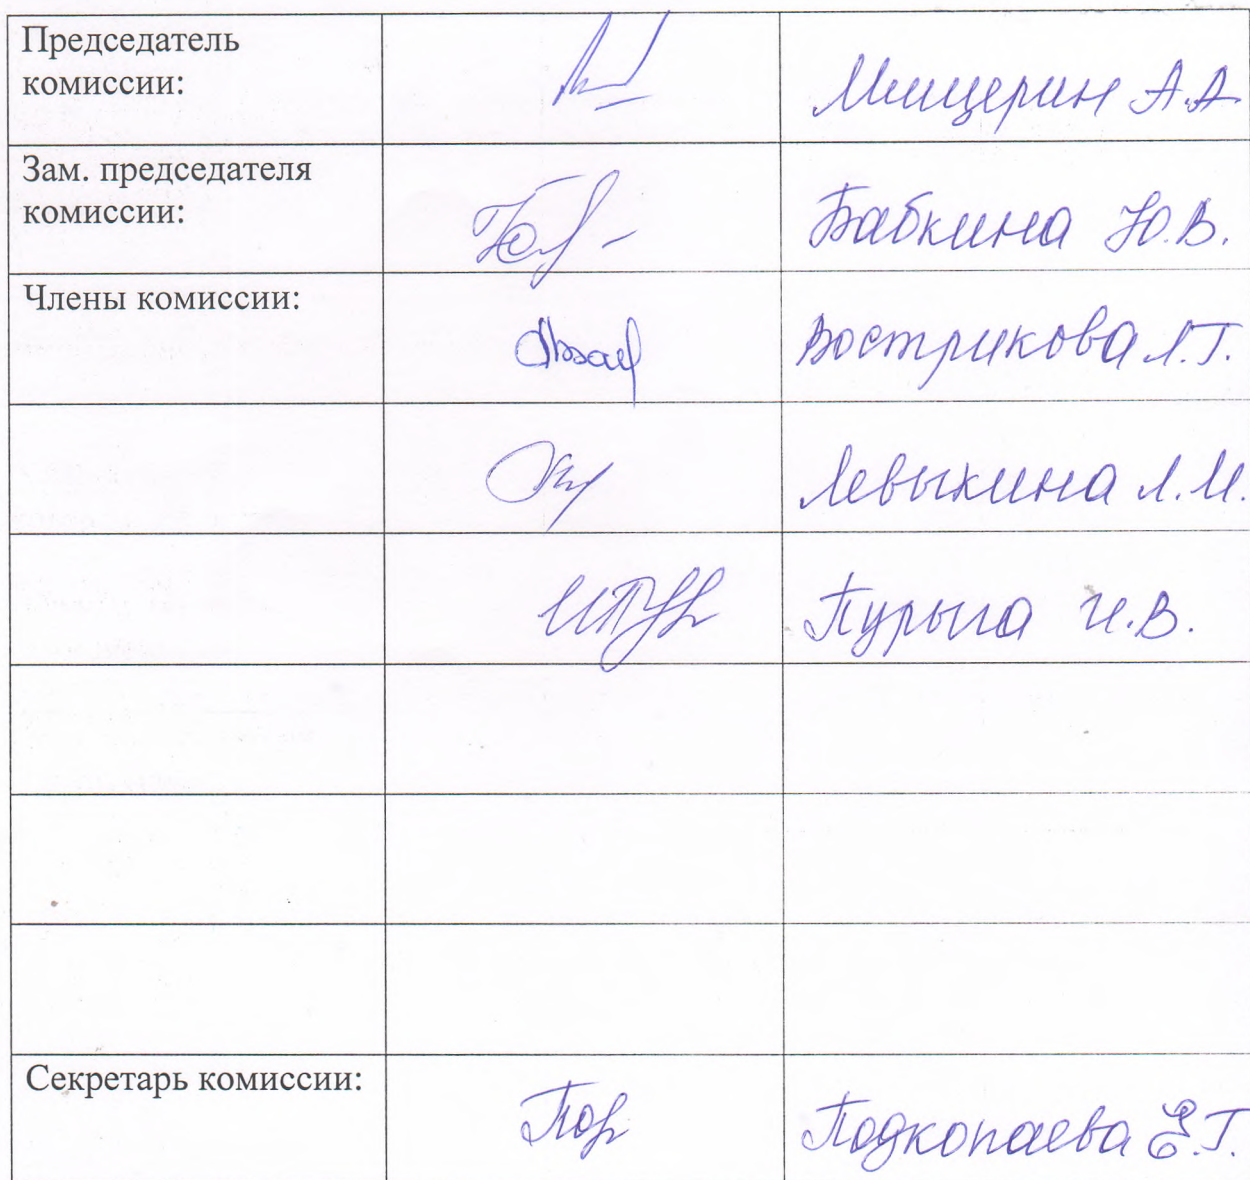 Председатель
комиссии:
Мищерин А.А
Зам. председателя
комиссии:
Бабкина Ю.В.
Члены комиссии:
Вострикова Л.Г.
Левыкина Л.М.
Пурыга И.В.
Секретарь комиссии:
Подкопаева Е.Г.